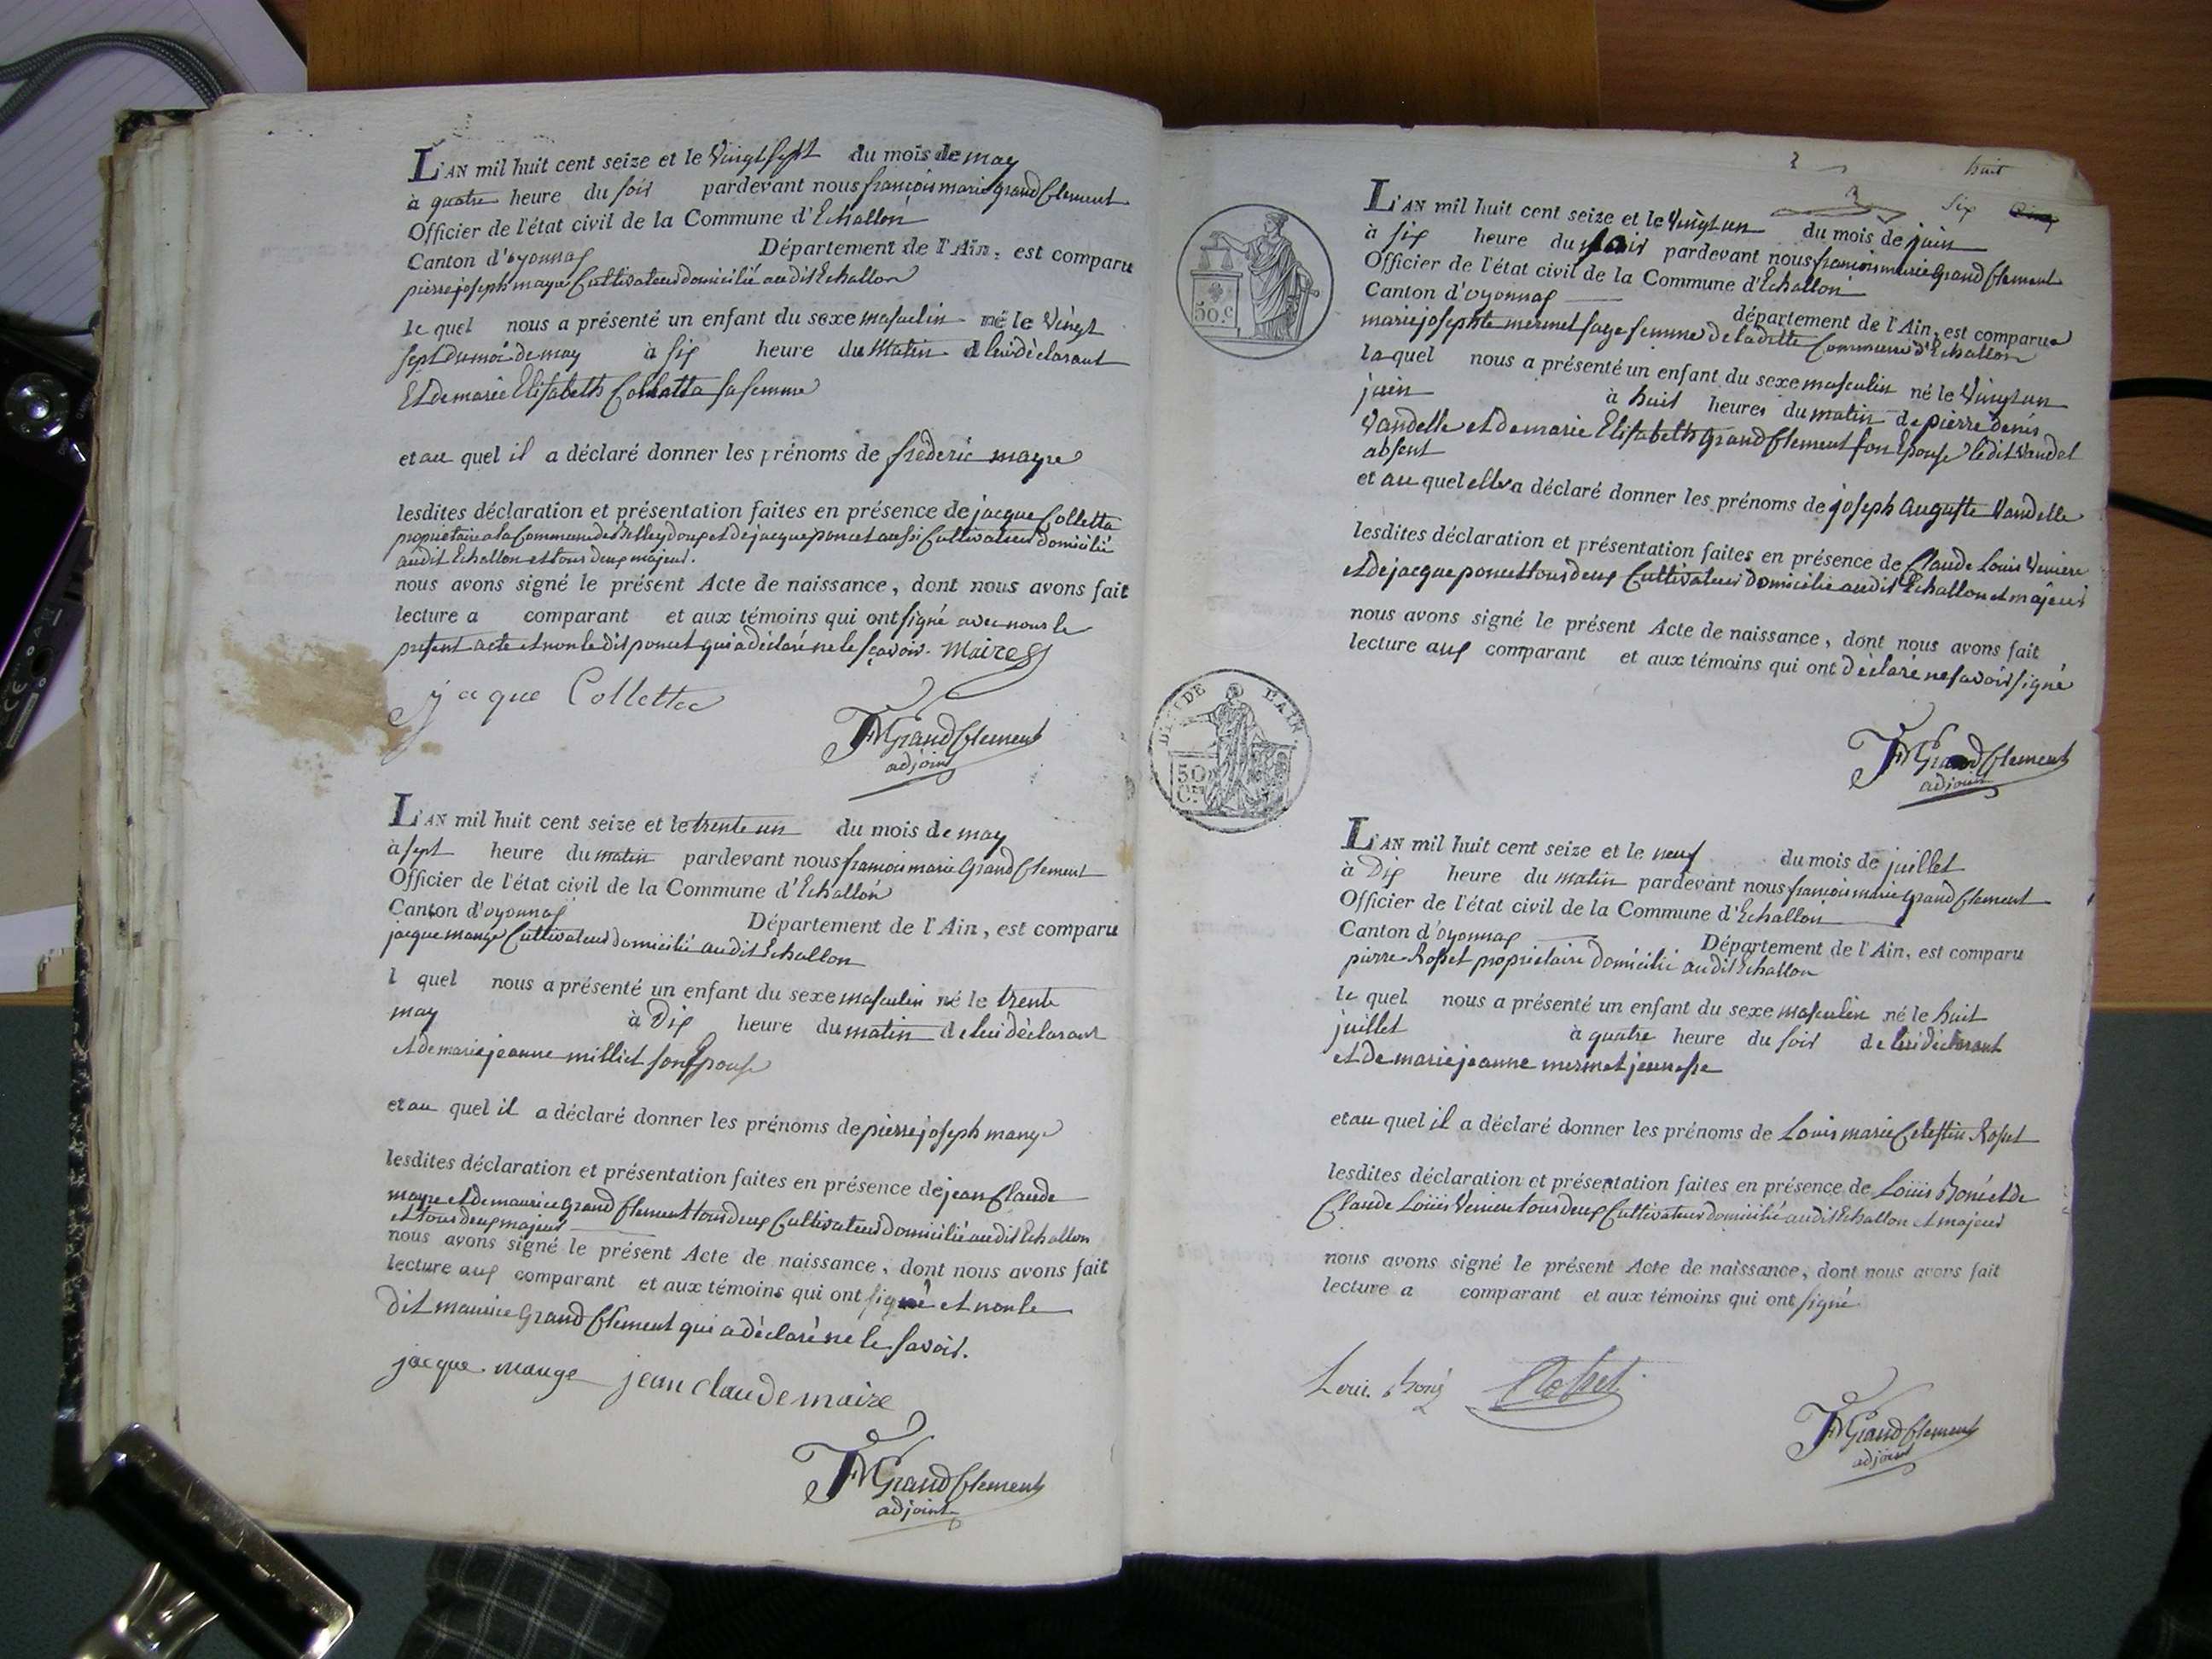 L'AN mil huit cent seize et le vingt sept du mois de may
à quatre heure du soir pardevant nous françois marie grand Clement
Officier de l'état civil de la Commune d'Echallon
Canton d'oyonnax Département de l'Ain, est comparu
pierre joseph mayre Cultivateur domicilié audit Echallon
le quel nous a présenté un enfant du sexe masculin né le vingt
sept du moi de may à six heure du matin de lui déclarant
Et de marie Elisabeth Colletta sa femme
et au quel il a déclaré donner les prénoms de frederic mayre
lesdites déclaration et présentation faites en présence de jacque Colletta
propriétaire a la Commune de Belleydoux et de jacque poncet aussi Cultivateur domicilié
audit Echallon et tous deux majeur.
nous avons signé le présent Acte de naissance, dont nous avons fait
lecture a comparant et aux témoins qui ont signé avec nous le
present acte et non le dit poncet qui a déclaré ne le sçavoir. Maire
jacque Collettaz
FM Grand Clement
adjoint
L'AN mil huit cent seize et le trente un du mois de may
à sept heure du matin pardevant nous francois marie Grand Clement
Officier de l'état civil de la Commune d'Echallon
Canton d'oyonnax Département de l'Ain, est comparu
jacque mange Cultivateur domicilié audit Echallon
l quel nous a présenté un enfant du sexe masculin né le trente
may à Dix heure du matin de lui déclarant
et de marie jeanne milliet son Epouse
et au quel il a déclaré donner les prénoms de pierre joseph mange
lesdites déclaration et présentation faites en présence de jean Claude
mayre et de maurice Grand Clement tous deux Cultivateur domicilié audit Echallon
et tous deux majeur
nous avons signé le présent Acte de naissance, dont nous avons fait
lecture aux comparant et aux témoins qui ont signé et non le
dit maurice Grand Clement qui a déclaré ne le savoir.
jacque mange jean claude maire
FM Grand Clement
adjoint
huit
six
L'AN mil huit cent seize et le vingt un du mois de juin
à six heure du soir pardevant nous francois marie Grand Clement
Officier de l'état civil de la Commune d'Echallon
Canton d'oyonnax département de l'Ain, est comparue
marie josephte mermet sage femme de la ditte Commune d'Echallon
laquel nous a présenté un enfant du sexe masculin né le vingt un
juin à huit heures du matin de pierre denis
Vandelle et de marie Elisabeth Grand Clement son Epouse le dit Vandel
absent
et au quel elle a déclaré donner les prénoms de joseph auguste Vandelle
lesdites déclaration et présentation faites en présence de Claude Louis Veniere
et de jacque poncet tous deux Cultivateur domicilié audit Echallon et majeur
nous avons signé le présent Acte de naissance, dont nous avons fait
lecture aux comparant et aux témoins qui ont déclaré ne savoir signé
50.c
DEP. DE L'AIN.
50
C.
FM Grand Clement
adjoint
L'AN mil huit cent seize et le neuf du mois de juillet
à Dix heure du matin pardevant nous francois marie grand Clement
Officier de l'état civil de la Commune d'Echallon
Canton d'oyonnax Département de l'Ain, est comparu
pierre Rosset propriétaire domicilié audit Echallon
le quel nous a présenté un enfant du sexe masculin né le huit
juillet à quatre heure du soir de lui déclarant
et de marie jeanne mermet jeunesse
et au quel il a déclaré donner les prénoms de Louis marie Celestin Rosset
lesdites déclaration et présentation faites en présence de Louis Boné et de
Claude Louis Veniere tous deux Cultivateur domicilié audit Echallon et majeur
nous avons signé le présent Acte de naissance, dont nous avons fait
lecture a comparant et aux témoins qui ont signé
Loui. Rosset
FM Grand Clement
adjoint